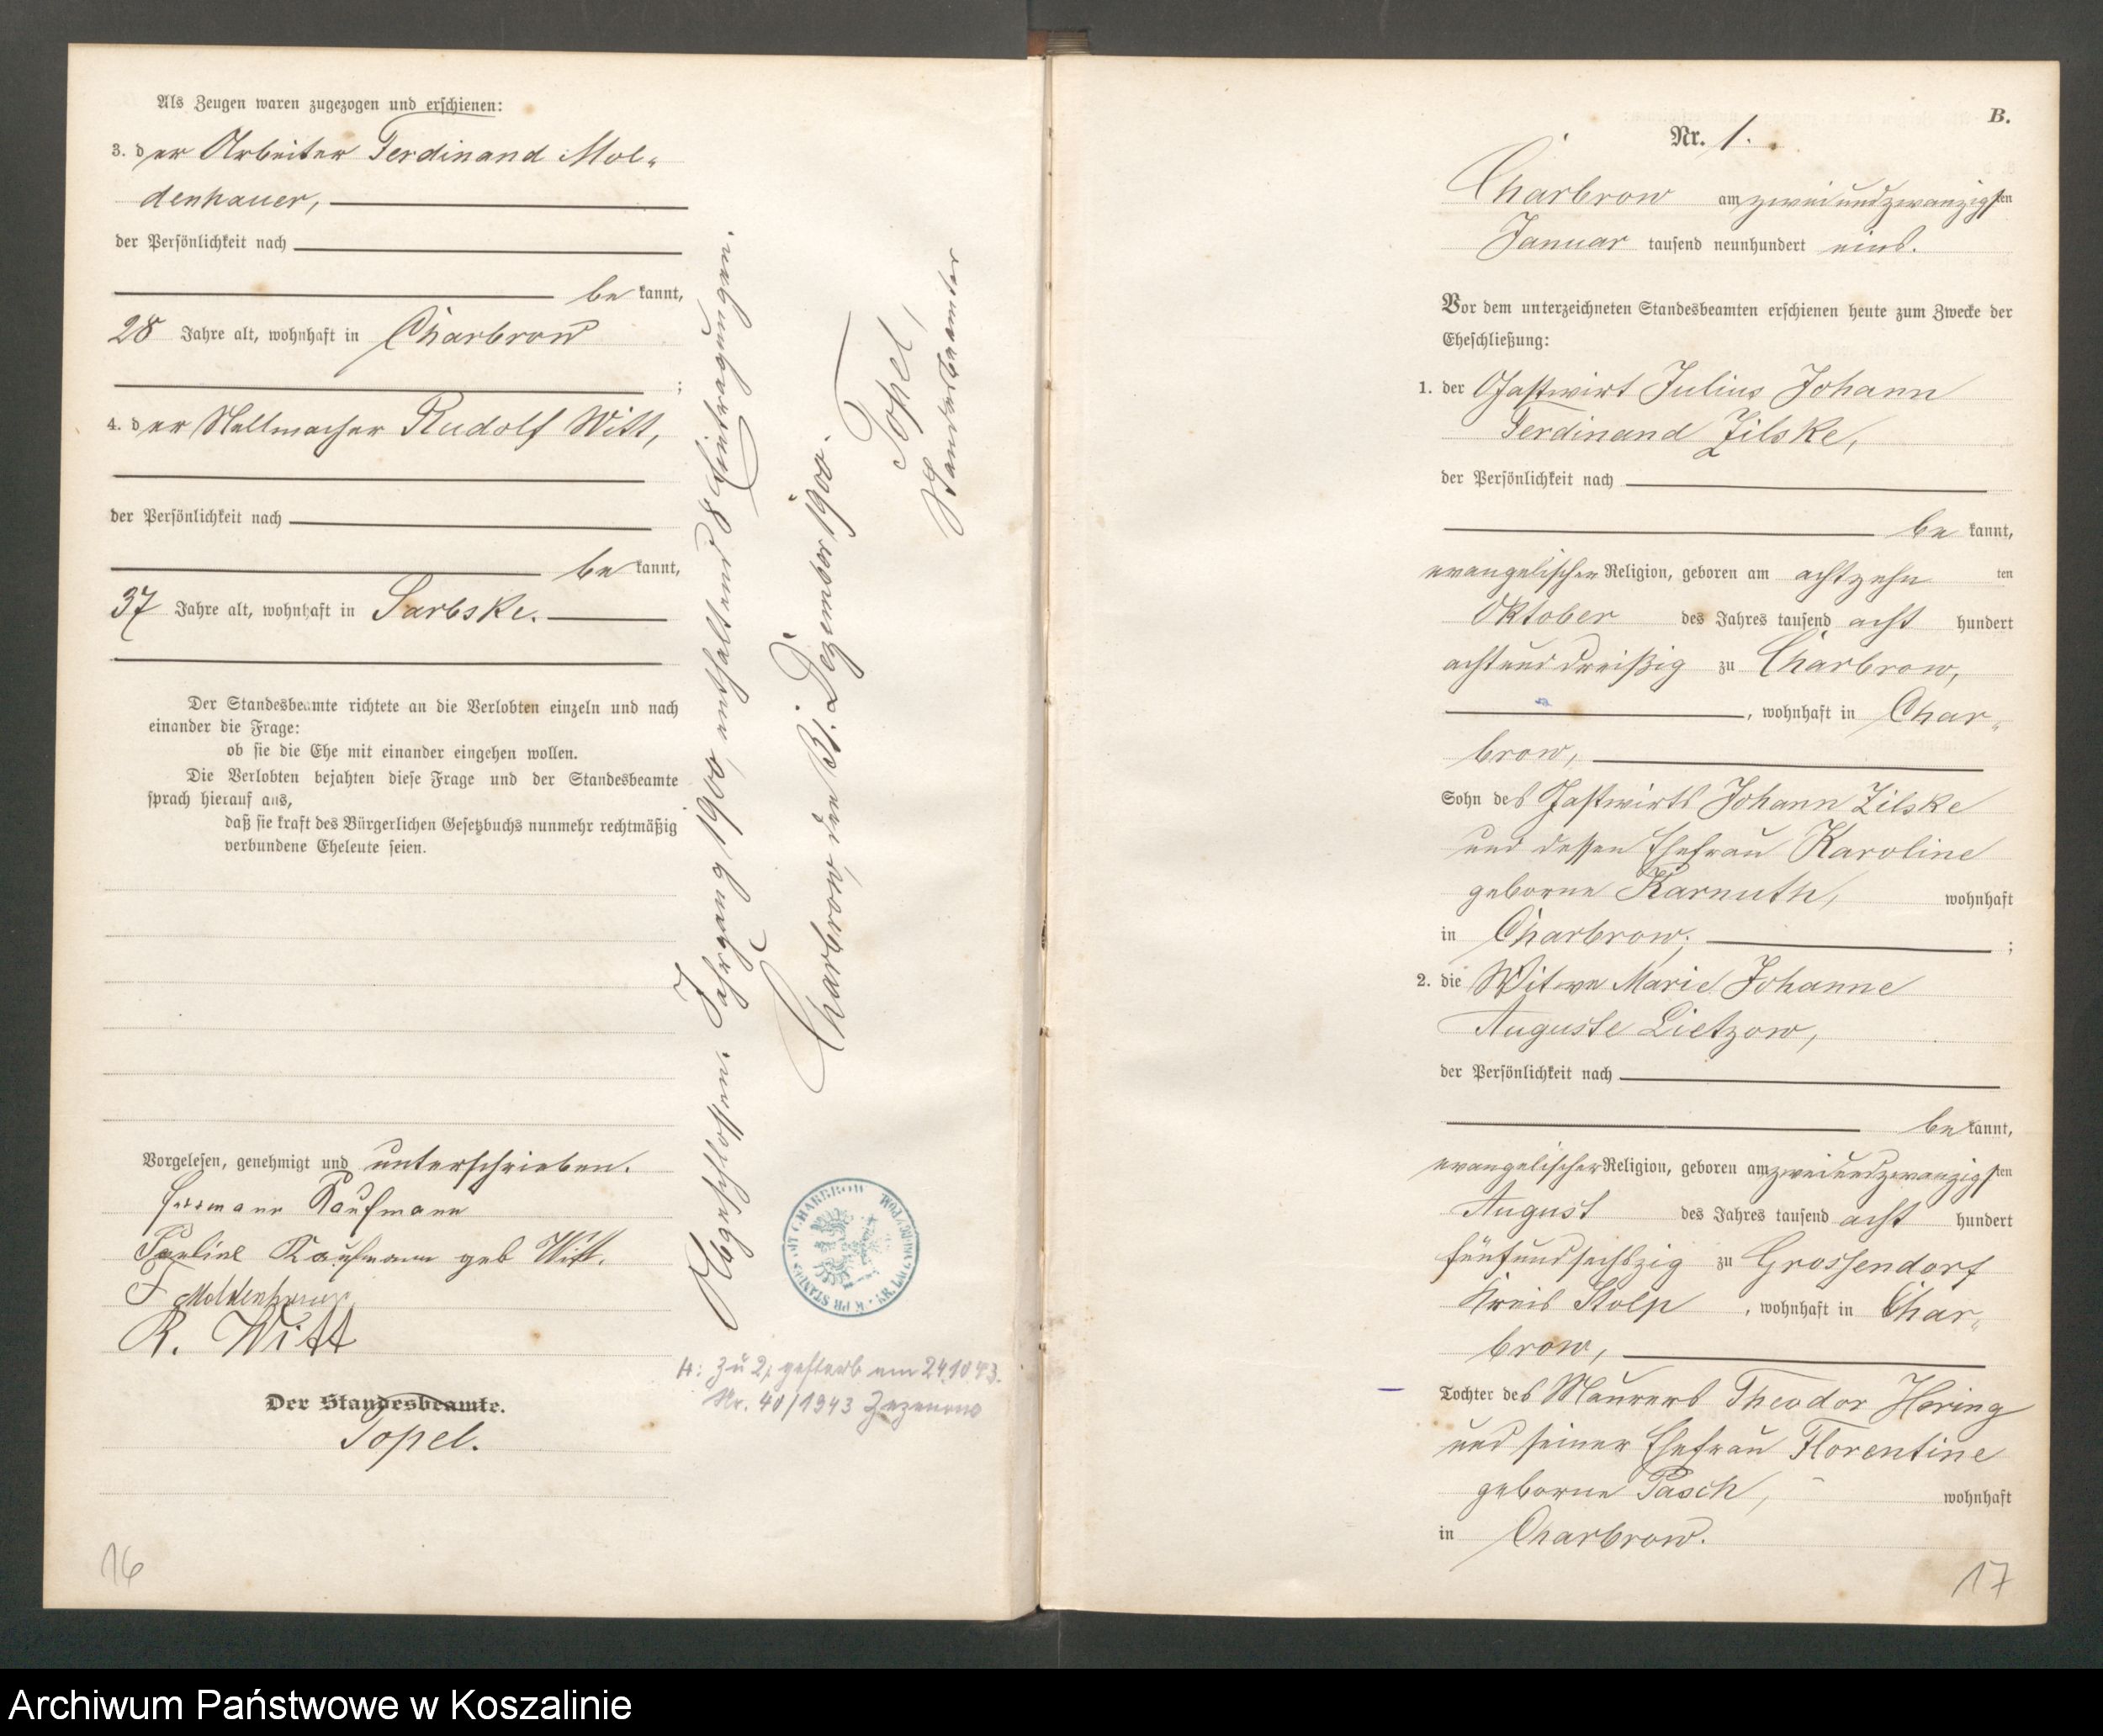 Als Zeugen waren zugezogen und erschienen:
3. der Arbeiter Ferdinand Mol-
denhauer,
der Persönlichkeit nach
be kannt,
28 Jahre alt, wohnhaft in Charbrow
;
4. der Stellmacher Rudolf Witt,
der Persönlichkeit nach
be kannt,
37 Jahre alt, wohnhaft in Sarbske.
Der Standesbeamte richtete an die Verlobten einzeln und nach
einander die Frage:
ob sie die Ehe mit einander eingehen wollen.
Die Verlobten bejahten diese Frage und der Standesbeamte
sprach hierauf aus,
daß sie kraft des Bürgerlichen Gesetzbuchs nunmehr rechtmäßig
verbundene Eheleute seien.
Vorgelesen, genehmigt und unterschrieben.
Hermann Kaufmann
Pauline Kaufmann geb Witt.
F Moldenhauer
R. Witt
Der Standesbeamte.
Topel.
16
Abgeschlossen. Jahrgang 1900, enthaltend 8 Eintragungen.
Charbrow, den 31. Dezember 1900.
Topel,
Standesbeamter
H: Zu 2, gestorb am 24.10.43.
Nr. 40/1943 Zezenow
B.
Nr. 1.
Charbrow am zweiundzwanzigsten
Januar tausend neunhundert eins.
Vor dem unterzeichneten Standesbeamten erschienen heute zum Zwecke der
Eheschließung:
1. der Gastwirt Julius Johann
Ferdinand Zilske,
der Persönlichkeit nach
be kannt,
evangelischer Religion, geboren am achtzehn ten
Oktober des Jahres tausend acht hundert
achtunddreißig zu Charbrow,
, wohnhaft in Char-
brow,
Sohn des Gastwirts Johann Zilske
und dessen Ehefrau Karoline
geborne Karnuth, wohnhaft
in Charbrow; ;
2. die Witwe Marie Johanne
Auguste Lietzow,
der Persönlichkeit nach
be kannt,
evangelischer Religion, geboren am zweiundzwanzigsten
August des Jahres tausend acht hundert
fünfundsechszig zu Grossendorf
Kreis Stolp , wohnhaft in Char-
brow,
Tochter des Maurers Theodor Hering
und seiner Ehefrau Florentine
geborne Pasch, wohnhaft
in Charbrow.
17
Archiwum Państwowe w Koszalinie